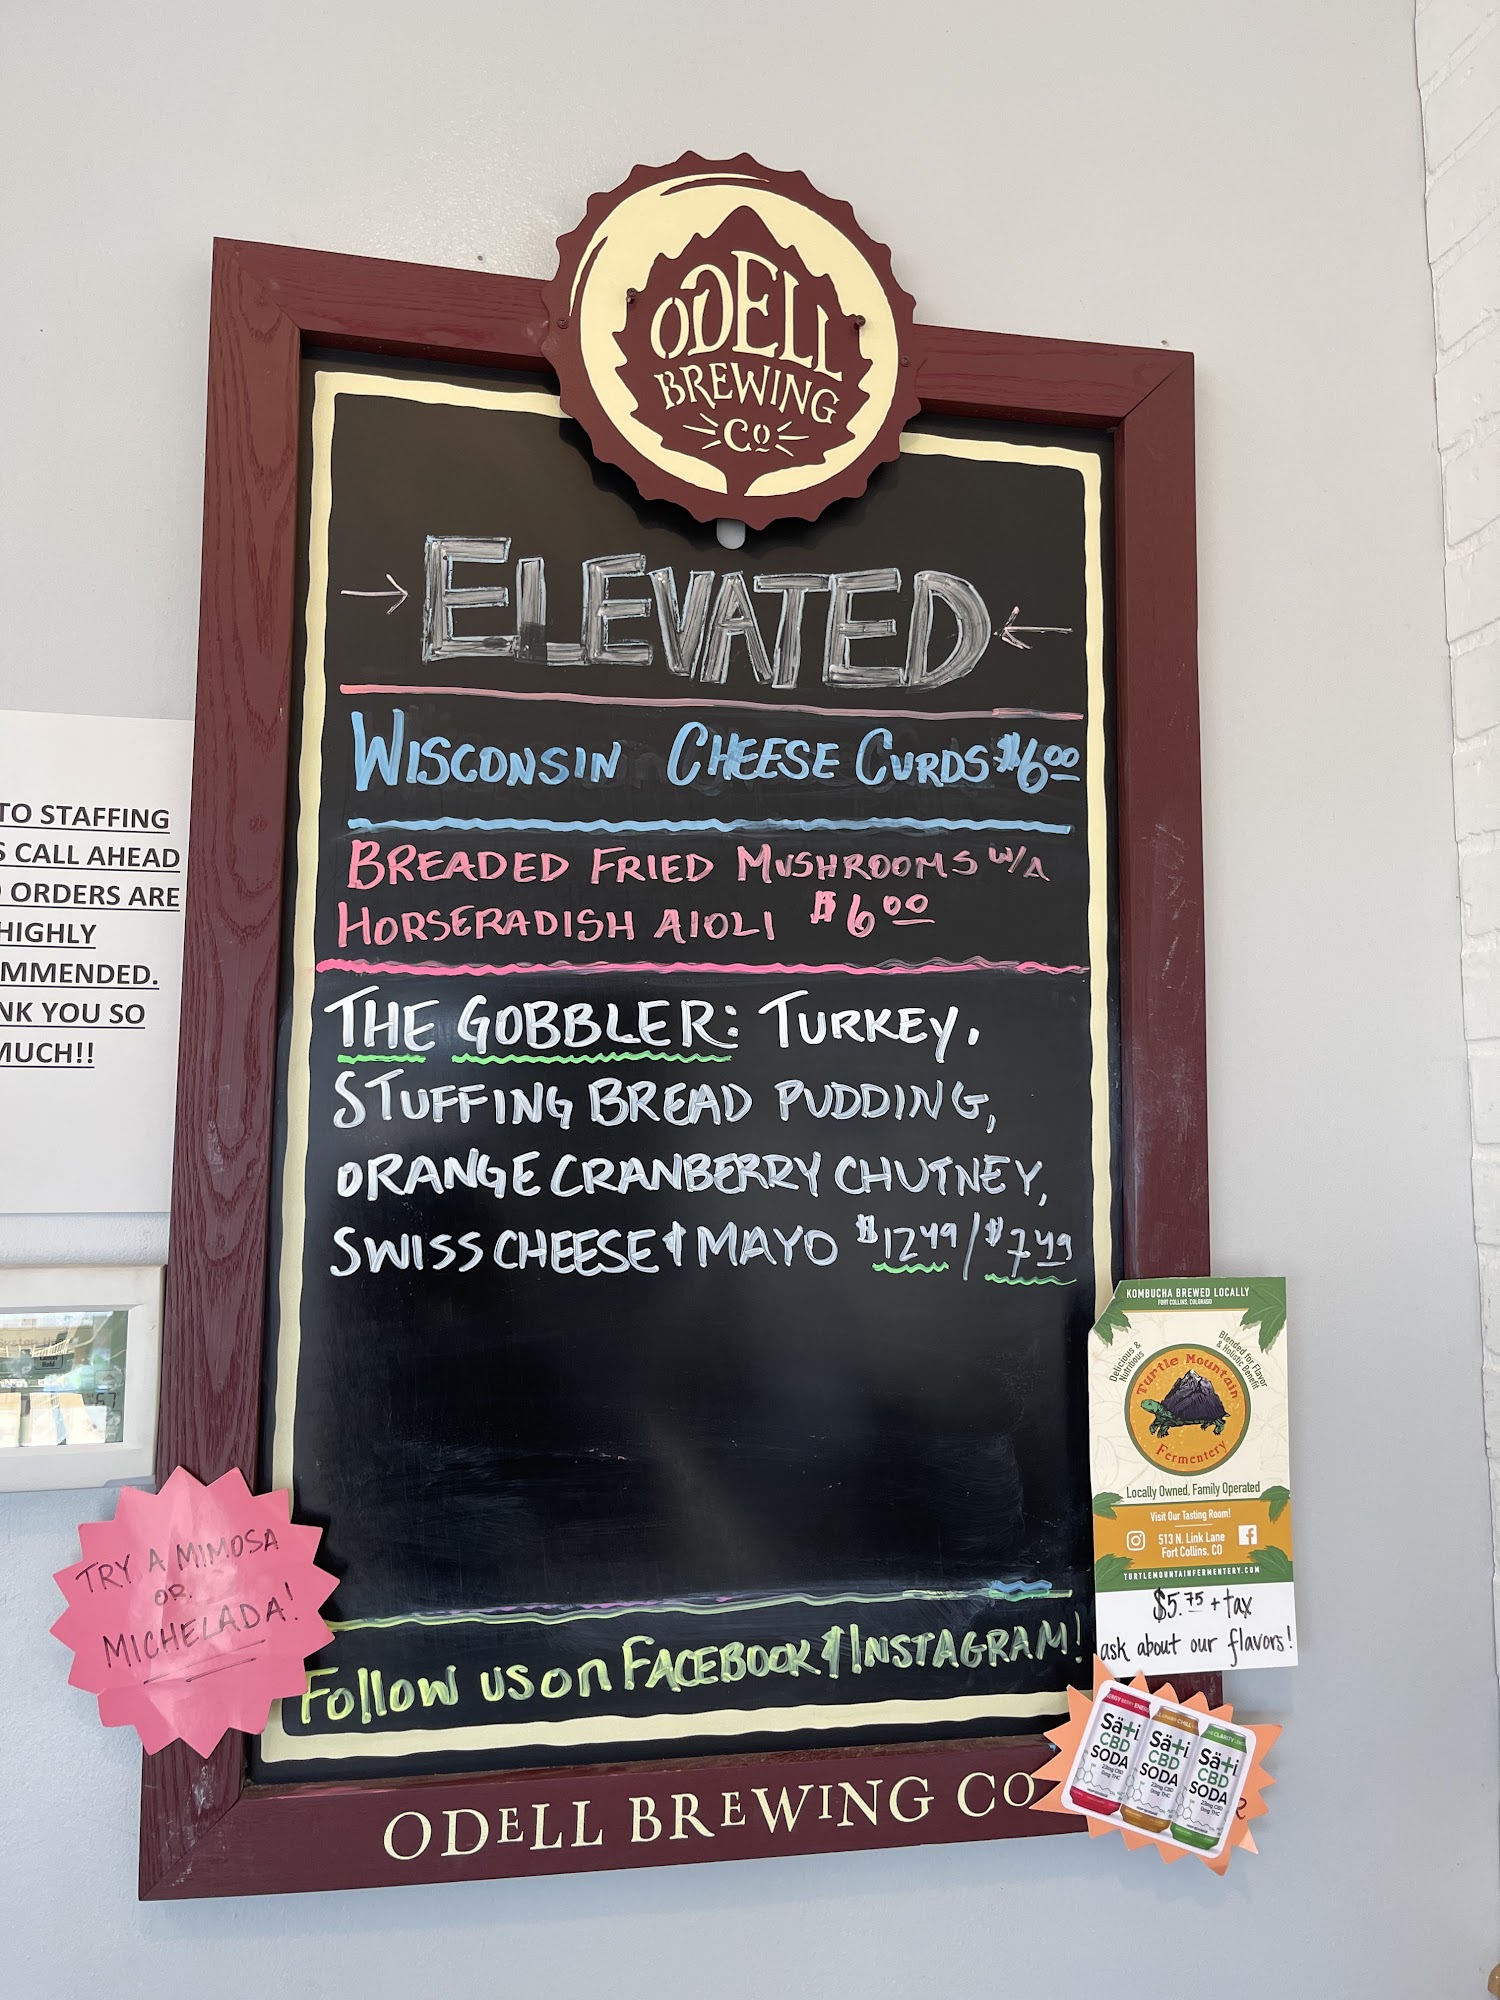 ODELL
BREWING
Co
ELEVATED
WISCONSIN CHEESE CURDS $6.00
BREADED FRIED MUSHROOMS W/A
HORSERADISH AIOLI $6.00
THE GOBBLER: TURKEY,
STUFFING BREAD PUDDING,
ORANGE CRANBERRY CHUTNEY,
SWISS CHEESE & MAYO $12.49/$7.49
Follow us on FACEBOOK & INSTAGRAM!
ODELL BREWING CO
TO STAFFING
CALL AHEAD
ORDERS ARE
HIGHLY
MMENDED.
NK YOU SO
MUCH!!
TRY A MIMOSA
OR
MICHELADA!
KOMBUCHA BREWED LOCALLY
FORT COLLINS, COLORADO
Delicious &
Nutritious
Blended for Flavor
& Holistic Benefit
Turtle Mountain
Fermentery
Locally Owned, Family Operated
Visit Our Tasting Room!
513 N. Link Lane
Fort Collins, CO
TURTLEMOUNTAINFERMENTERY.COM
$5.75 + tax
ask about our flavors!
Säti
CBD
SODA
23mg CBD
0mg THC
Säti
CBD
SODA
23mg CBD
0mg THC
Säti
CBD
SODA
23mg CBD
0mg THC